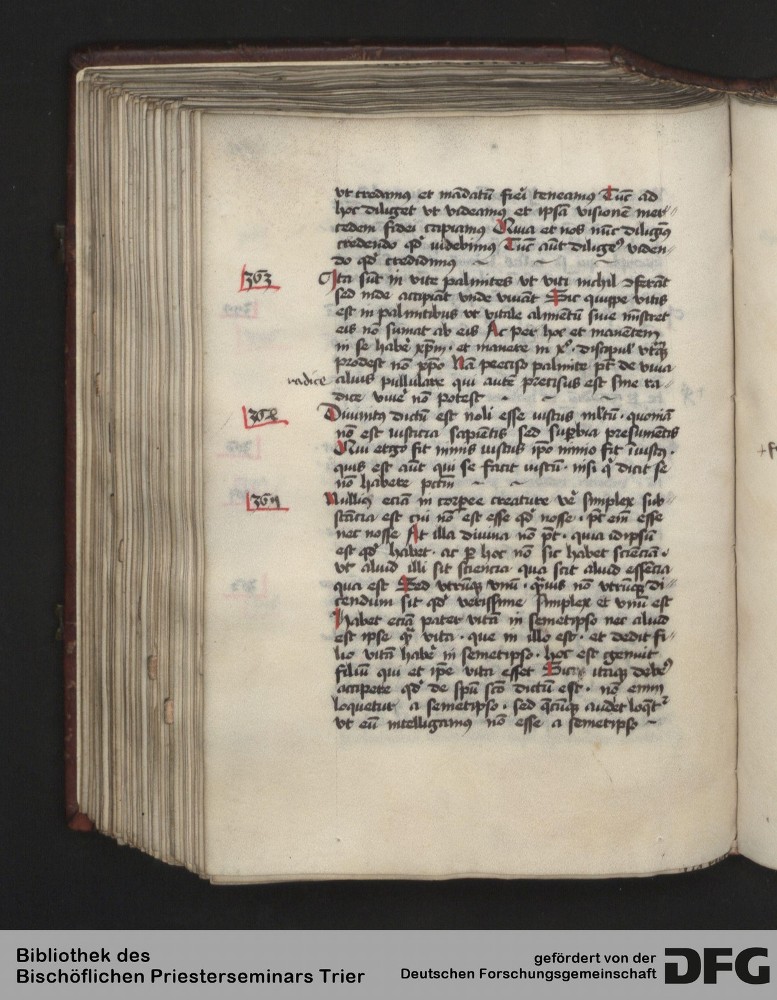 vt credamꝰ et mādatū fidei teneamꝰ Tūc ad
hoc diliget vt videamꝰ et ipsā visionē mer〃
cedem fidei capiamꝰ Quia et nos nūc diligimꝰ
credendo qd̛ videbimꝰ Tūc aūt diligemꝰ viden〃
do qd̛ credidimꝰ
363
Ita sūt in vite palmites vt viti nichil ꝯferāt
sed inde accipiāt vnde viuāt Sic quippe vitis
est in palmitibus vt vitale alimētū siue mīstret
eis nō sumat ab eis Ac per hoc et manētem
in se habē xp̄m · et manere in xº · discipul' vtrūqꝫ
prodest nō xp̄o Nā preciso palmite pt̄ de viua
radice
alius pullulare qui autē precisus est sine ra〃
dice viuē nō potest
364
Diuinitꝰ dictū est noli esse iustus ml̄tū · quoniā
nō est iusticia sapiētis sed suꝑbia presumētis
Qui ergo fit nimis iustus ip̄o nimio fit iniustꝰ ·
quis est aūt qui se facit iustū · nisi q̄ dicit se
nō habere pctm̄
365
Nulliꝰ eciā in corpore creature vē simplex sub〃
stācia est cui nō est esse qd̛ nosse · pt̄ enī esse
nec nosse At illa diuina nō pt̄ · quia idipsū
est qd̛ habet · ac ꝑ hoc nō sic habet scienciā ·
vt aliud illi sit sciencia · qua scit aliud essēcia
qua est Sed vtrūqꝫ vnū · q̄uis nō vtrūqꝫ di〃
cendum sit qd̛ verissime simplex et vnū est
Habet eciā pater vitā in semetipso nec aliud
est ipse q̄ vita · que in illo est · et dedit fi〃
lio vitā habē in semetipso · hoc est genuit
filiū qui et ip̄e vita esset Sic itaqꝫ debemꝰ
accipere qd̛ de sp̄u scō dictū est · nō enim
loquetur a semetipso · sed q̄cūqꝫ audiet loq̄t᷑
vt eū intelligamꝰ nō esse a semetipso
Bibliothek des
Bischöflichen Priesterseminars Trier
gefördert von der
Deutschen Forschungsgemeinschaft
DFG